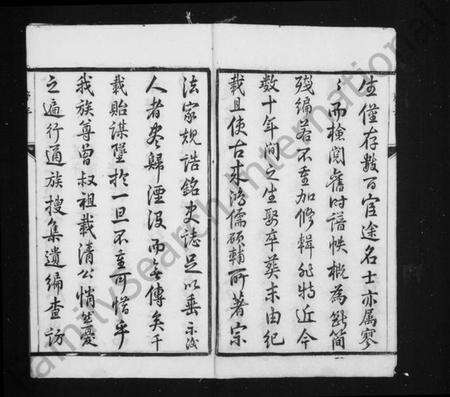 生僅存數百宦途名士亦屬寥
〻而檢閱舊時譜帙概為斷簡
殘編若不重加修輯非特近今
數十年間之生娶卒葬末由紀
載且使古來鴻儒碩輔所著宗
法家規誥銘史誌足以垂示後
人者盡歸湮沒而無傳矣千
載貽謀墜於一旦不重可惜乎
我族尊曾叔祖載清公悄焉憂
之遍行通族搜集遺編查訪
FamilySearch International